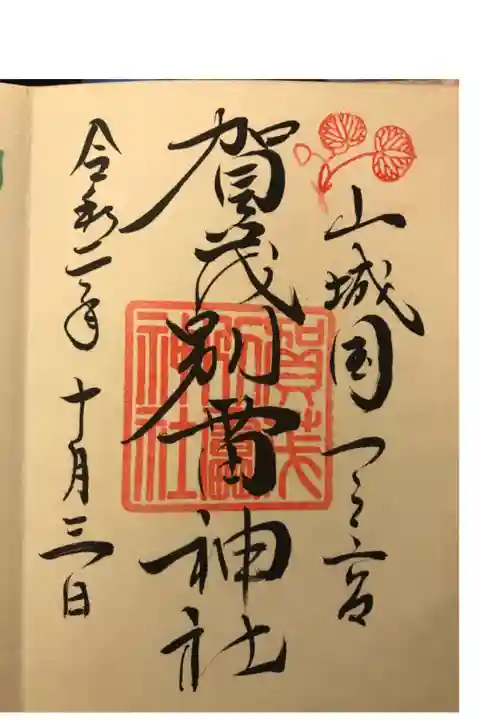 山城国一之宮
賀茂別雷神社
賀茂別雷神社
令和二年十月三日